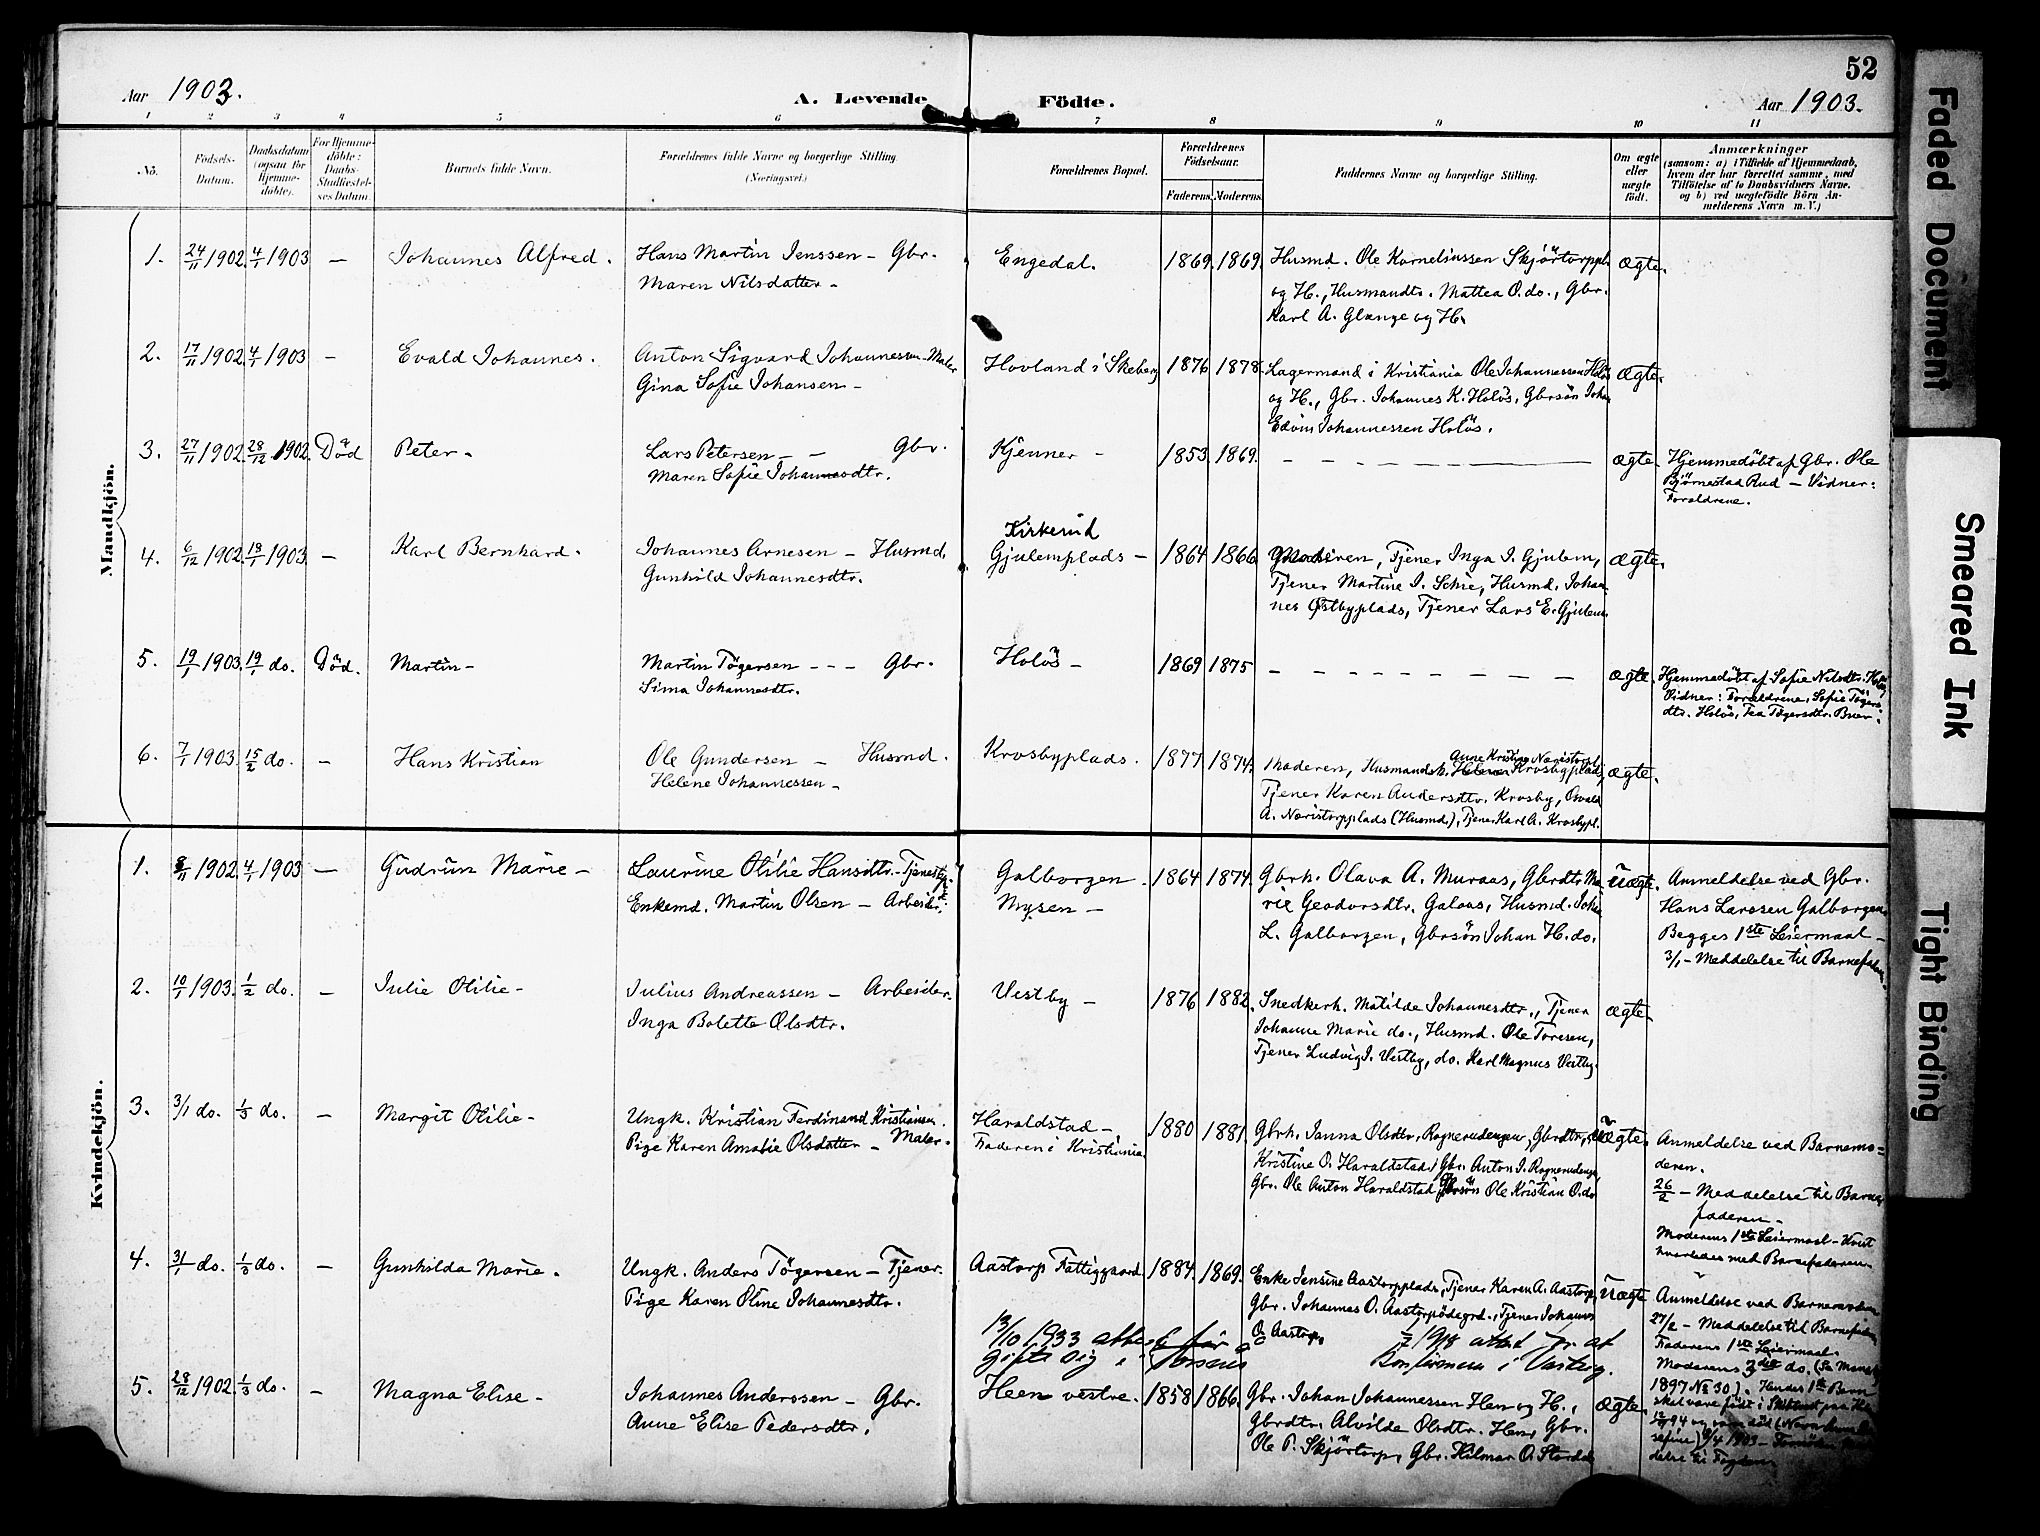 52
Aar 1903.
A. Levende Födte.
Aar 1903.
1 2 3 4 5 6 7 8 9 10 11
No.
Födsels-Datum.
Daabsdatum (ogsaa for Hjemmedöbte).
For Hjemmedöbte: Daabs-Stadfæstelses Datum
Barnets fulde Navn.
Forældrenes fulde Navne og borgerlige Stilling.
(Næringsvei.)
Forældrenes Bopæl.
Forældrenes Födselsaar.
Faderens. Moderens.
Faddernes Navne og borgerlige Stilling.
Om ægte eller uægte födt.
Anmærkninger
(saasom: a) i Tilfælde af Hjemmedaab,
hvem der har forrettet samme, med
Tilföielse af to Daabsvidners Navne.
og b) ved uægtefödte Börn An-
melderens Navn m. V.)
Mandkjön.
1. 24/11 1902. 4/1 1903 — Johannes Alfred. Hans Martin Jenssen — Gbr. Engedal. 1869. 1869. Husmd. Ole Korneliussen Skjörtorppl. ægte.
Maren Nilsdatter — og H., Husmandts. Mattea O. do., Gbr.
Karl A. Glænge og H.
2. 17/11 1902. 4/1 1903 — Evald Johannes. Anton Sigvard Johannessen — Maler Hovland i Skeberg 1876 1878. Lagermand i Kristiania Ole Johannessen Holös ægte.
Gina Sofie Johansen — og H., Gbr. Johannes K. Holös, Gbrsön Johan
Edvin Johannessen Holös.
3. 27/11 1902. 28/12 1902. Död Peter. Lars Petersen — — Gbr. Kjenner — 1853 1869. ægte. Hjemmedöbt af Gbr. Ole
Maren Sofie Johannesdtr. Bjørnestad Rud — Vidner:
Forældrene.
4. 6/12 1902. 18/1 1903. — Karl Bernhard. Johannes Arnesen — Husmd. Kirkerud
Gjulemplads — 1864 1866 Moderen, Tjener Inga J. Gjulem, ægte.
Gunhild Johannesdtr. Tjener Martine J. Schie, Husmd. Johan
nes Østbyplads, Tjener Lars E. Gjulem
5. 19/1 1903. 19/1 do. Död. Martin — Martin Tögersen — — — Gbr. Holös — 1869 1875 ægte. Hjemmedöbt af Sofie Nilsdtr.
Sima Johannesdtr. Vidner: Forældrene, Sofie Tögers
dtr. Holös, Tea Tögersdtr. Buer.
6. 7/1 1903 15/2 do. — Hans Kristian Ole Gundersen — Husmd. Krosbyplads. 1877 1874. Moderen, Husmandsk. Anne Kristine Noristorpl. Krosbyplads, ægte.
Helene Johannessen — Tjener Karen Andersdtr. Krosby, Osvald
A. Noristorpplads (Husmd.), Tjener Karl A. Krosbypl.
Kvindekjön.
1. 8/11 1902 4/1 1903 — Gudrun Marie — Laurine Otilie Hansdtr. — Tjenestepi. Galborgen. 1864 1874. Gbrk. Olava A. Muraas, Gbrdtr. Ma uægte. Anmeldelse ved Gbr.
Enkemd. Martin Olsen — Arbeider. Mysen — rie Geodorsdtr. Galaas, Husmd. Johs. Hans Larssen Galborgen
L. Galborgen, Gbrsön Johan H. do. Begges 1ste Leiermaal —
3/1 — Meddelelse til Barnefader
2. 10/1 1903. 1/2 do. — Julie Otilie — Julius Andreassen — Arbeider. Vestby — 1876 1882. Snedkerk. Matilde Johannesdtr., Tjener ægte
Inga Bolette Olsdtr. Johanne Marie do., Husmd. Ole Toresen,
Tjener Ludvig J. Vestby, do. Karl Magnus Vestby.
3. 3/1 do. 1/3 do. — Margit Otilie — Ungk. Kristian Ferdinand Kristiansen. Haraldstad — 1880 1881. Gbrk. Janna Olsdtr. Rognerudengen, Gbrdtr. uægte. Anmeldelse ved Barnemo-
Pige Karen Amalie Olsdatter — Maler. Faderen i Kristiania. Kristine O. Haraldstad, Gbr. Anton J. Rognerudenge, deren.
Gbr. Ole Anton Haraldstad Gbrsön Ole Kristian O. do 26/2 — Meddelelse til Barne
faderen —
Moderens 1ste Leiermaal —
med Barnefaderen.
4. 31/1 do. 1/3 do. — Gunhilda Marie. Ungk. Anders Tögersen — Tjener. Aastorp Fattiggaard. 1884. 1869. Enke Jensine Aastorpplads, Tjener Karen A. Aastorp, Uægte Anmeldelse ved Barnemoderen
Pige Karen Oline Johannesdtr. Gbr. Johannes O. Aastorpödegrd., Tjener Johannes 27/2 — Meddelelse til Barnefader
O. Aastorp, Faderens 1ste Leiermaal.
13/10 1933 attest for å
gifte sig i Horsens
1918 attest for at
Konfirmeres i Vestby.
Moderens 3die do.
1897 No 30). Hendes 1ste Barn
5. 28/12 1902. 1/3 do. — Magna Elise — Johannes Anderssen — Gbr. Heen vestre. 1858 1866. Gbr. Johan Johannessen Hen og H., ægte.
Anne Elise Pedersdtr. Gbrdtr. Alvilde Olsdtr. Hen, Gbr.
Ole P. Skjörtorp, Gbr. Hilmar O. Stordal
Faded Document
Smeared Ink
Tight Binding